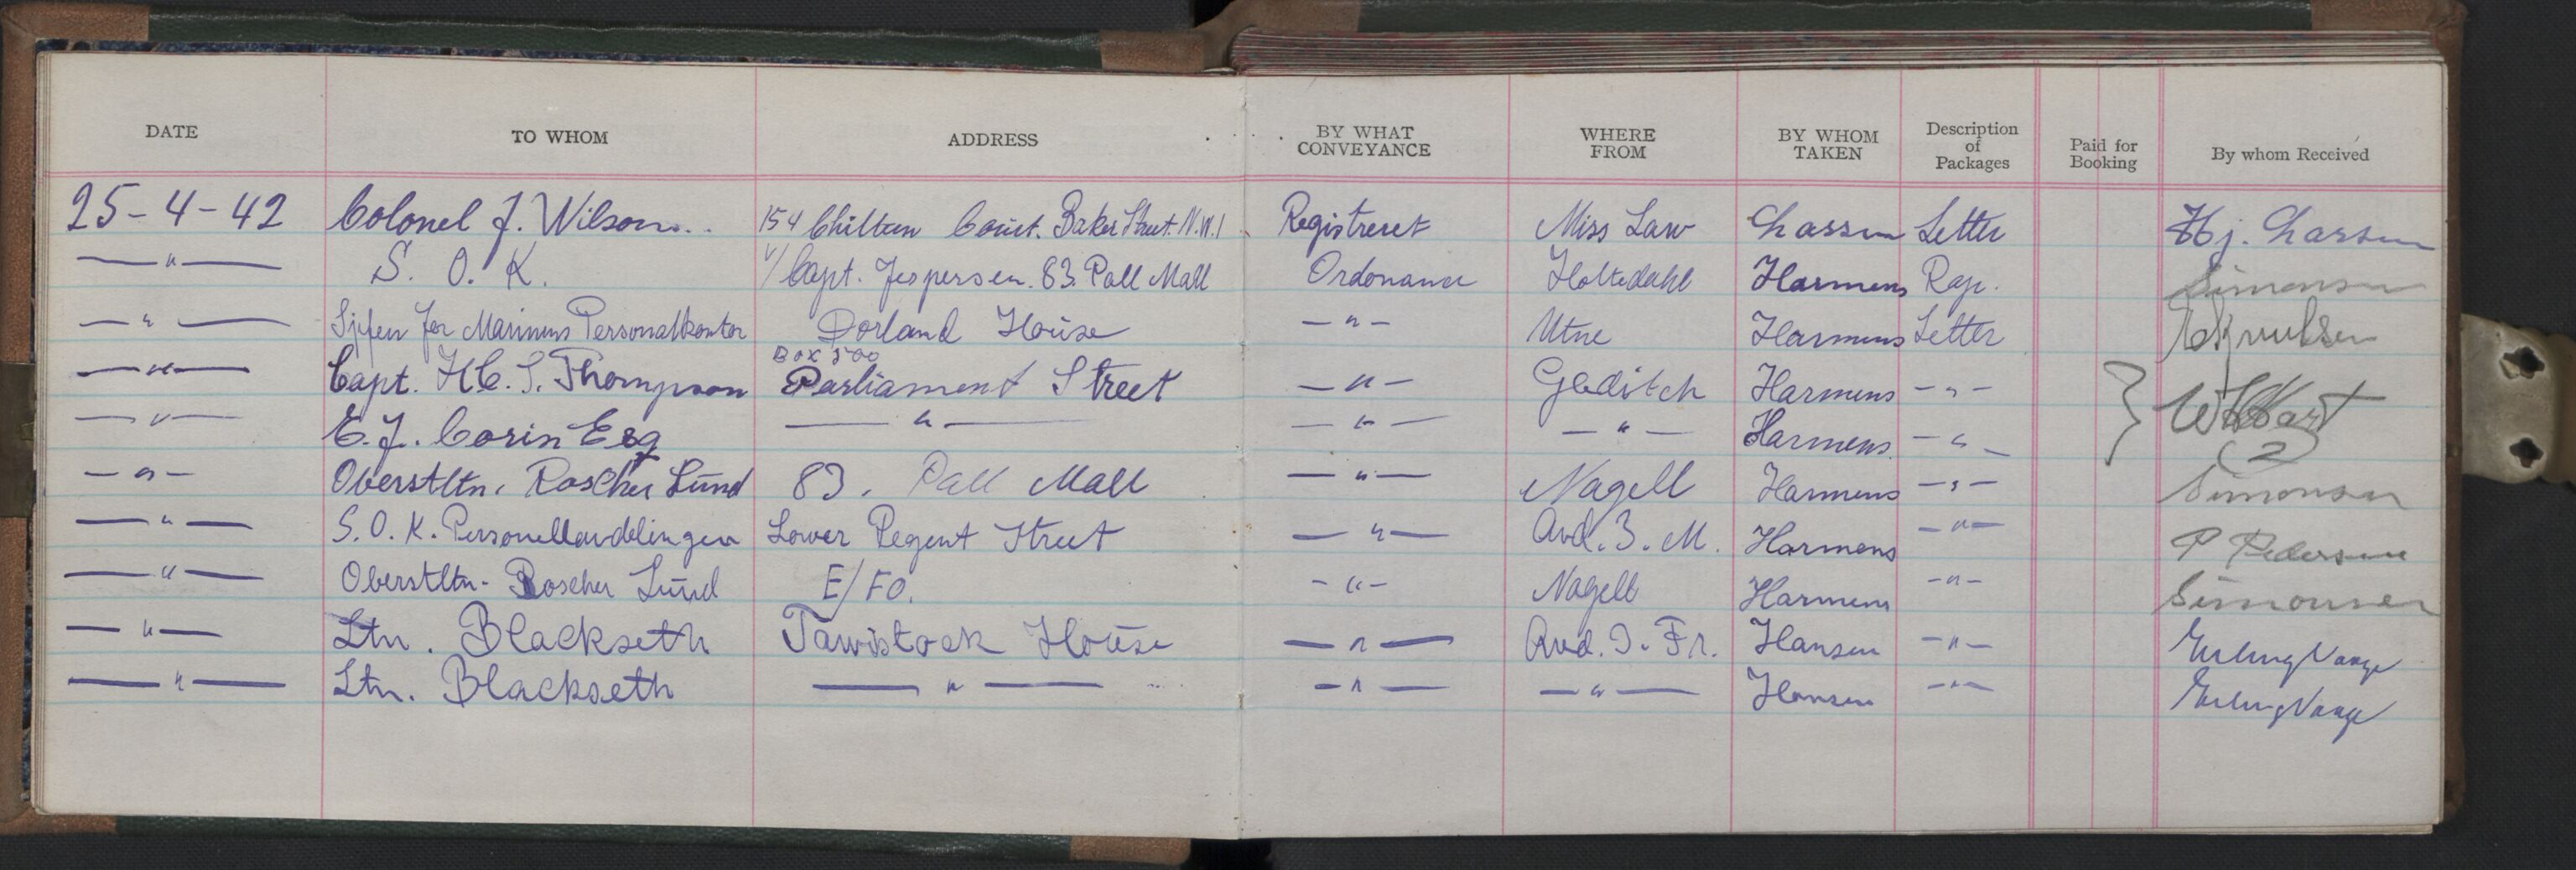 DATE TO WHOM ADDRESS BY WHAT CONVEYANCE WHERE FROM BY WHOM TAKEN Description of Packages Paid for Booking By whom Received
25-4-42 Colonel J. Wilson.. 154 Chiltern Court. Baker Street. N.W.1 Registreret Miss Law Larssen Letter Hj. Larssen
—"— S. O. K. v/ Capt. Jespersen. 83. Pall Mall Ordonance Holtedahl Harmens Rap. Simonsen
—"— Sjefen for Marinens Personalkontor Dorland House —"— Utne Harmens Letter Knudsen
—"— Capt. H.C.S. Thompson Box 500 Parliament Street —"— Gleditch Harmens —"—
—"— E.J. Corin Esq —"— —"— —"— Harmens. —"— (2)
—"— Oberstltn. Roscher Lund 83. Pall Mall —"— Nagell Harmens —"— Simonsen
—"— S.O.K. Personellavdelingen Lower Regent Street —"— Avd. 3. M. Harmens —"— P Pedersen
—"— Oberstltn. Roscher Lund E/FO. —"— Nagell Harmens —"— Simonsen
—"— Ltn. Blackseth Tavistock House —"— Avd. 3. Fr. Hansen —"— Erling Vaage
—"— Ltn. Blackseth —"— —"— —"— Hansen —"— Erling Vaage